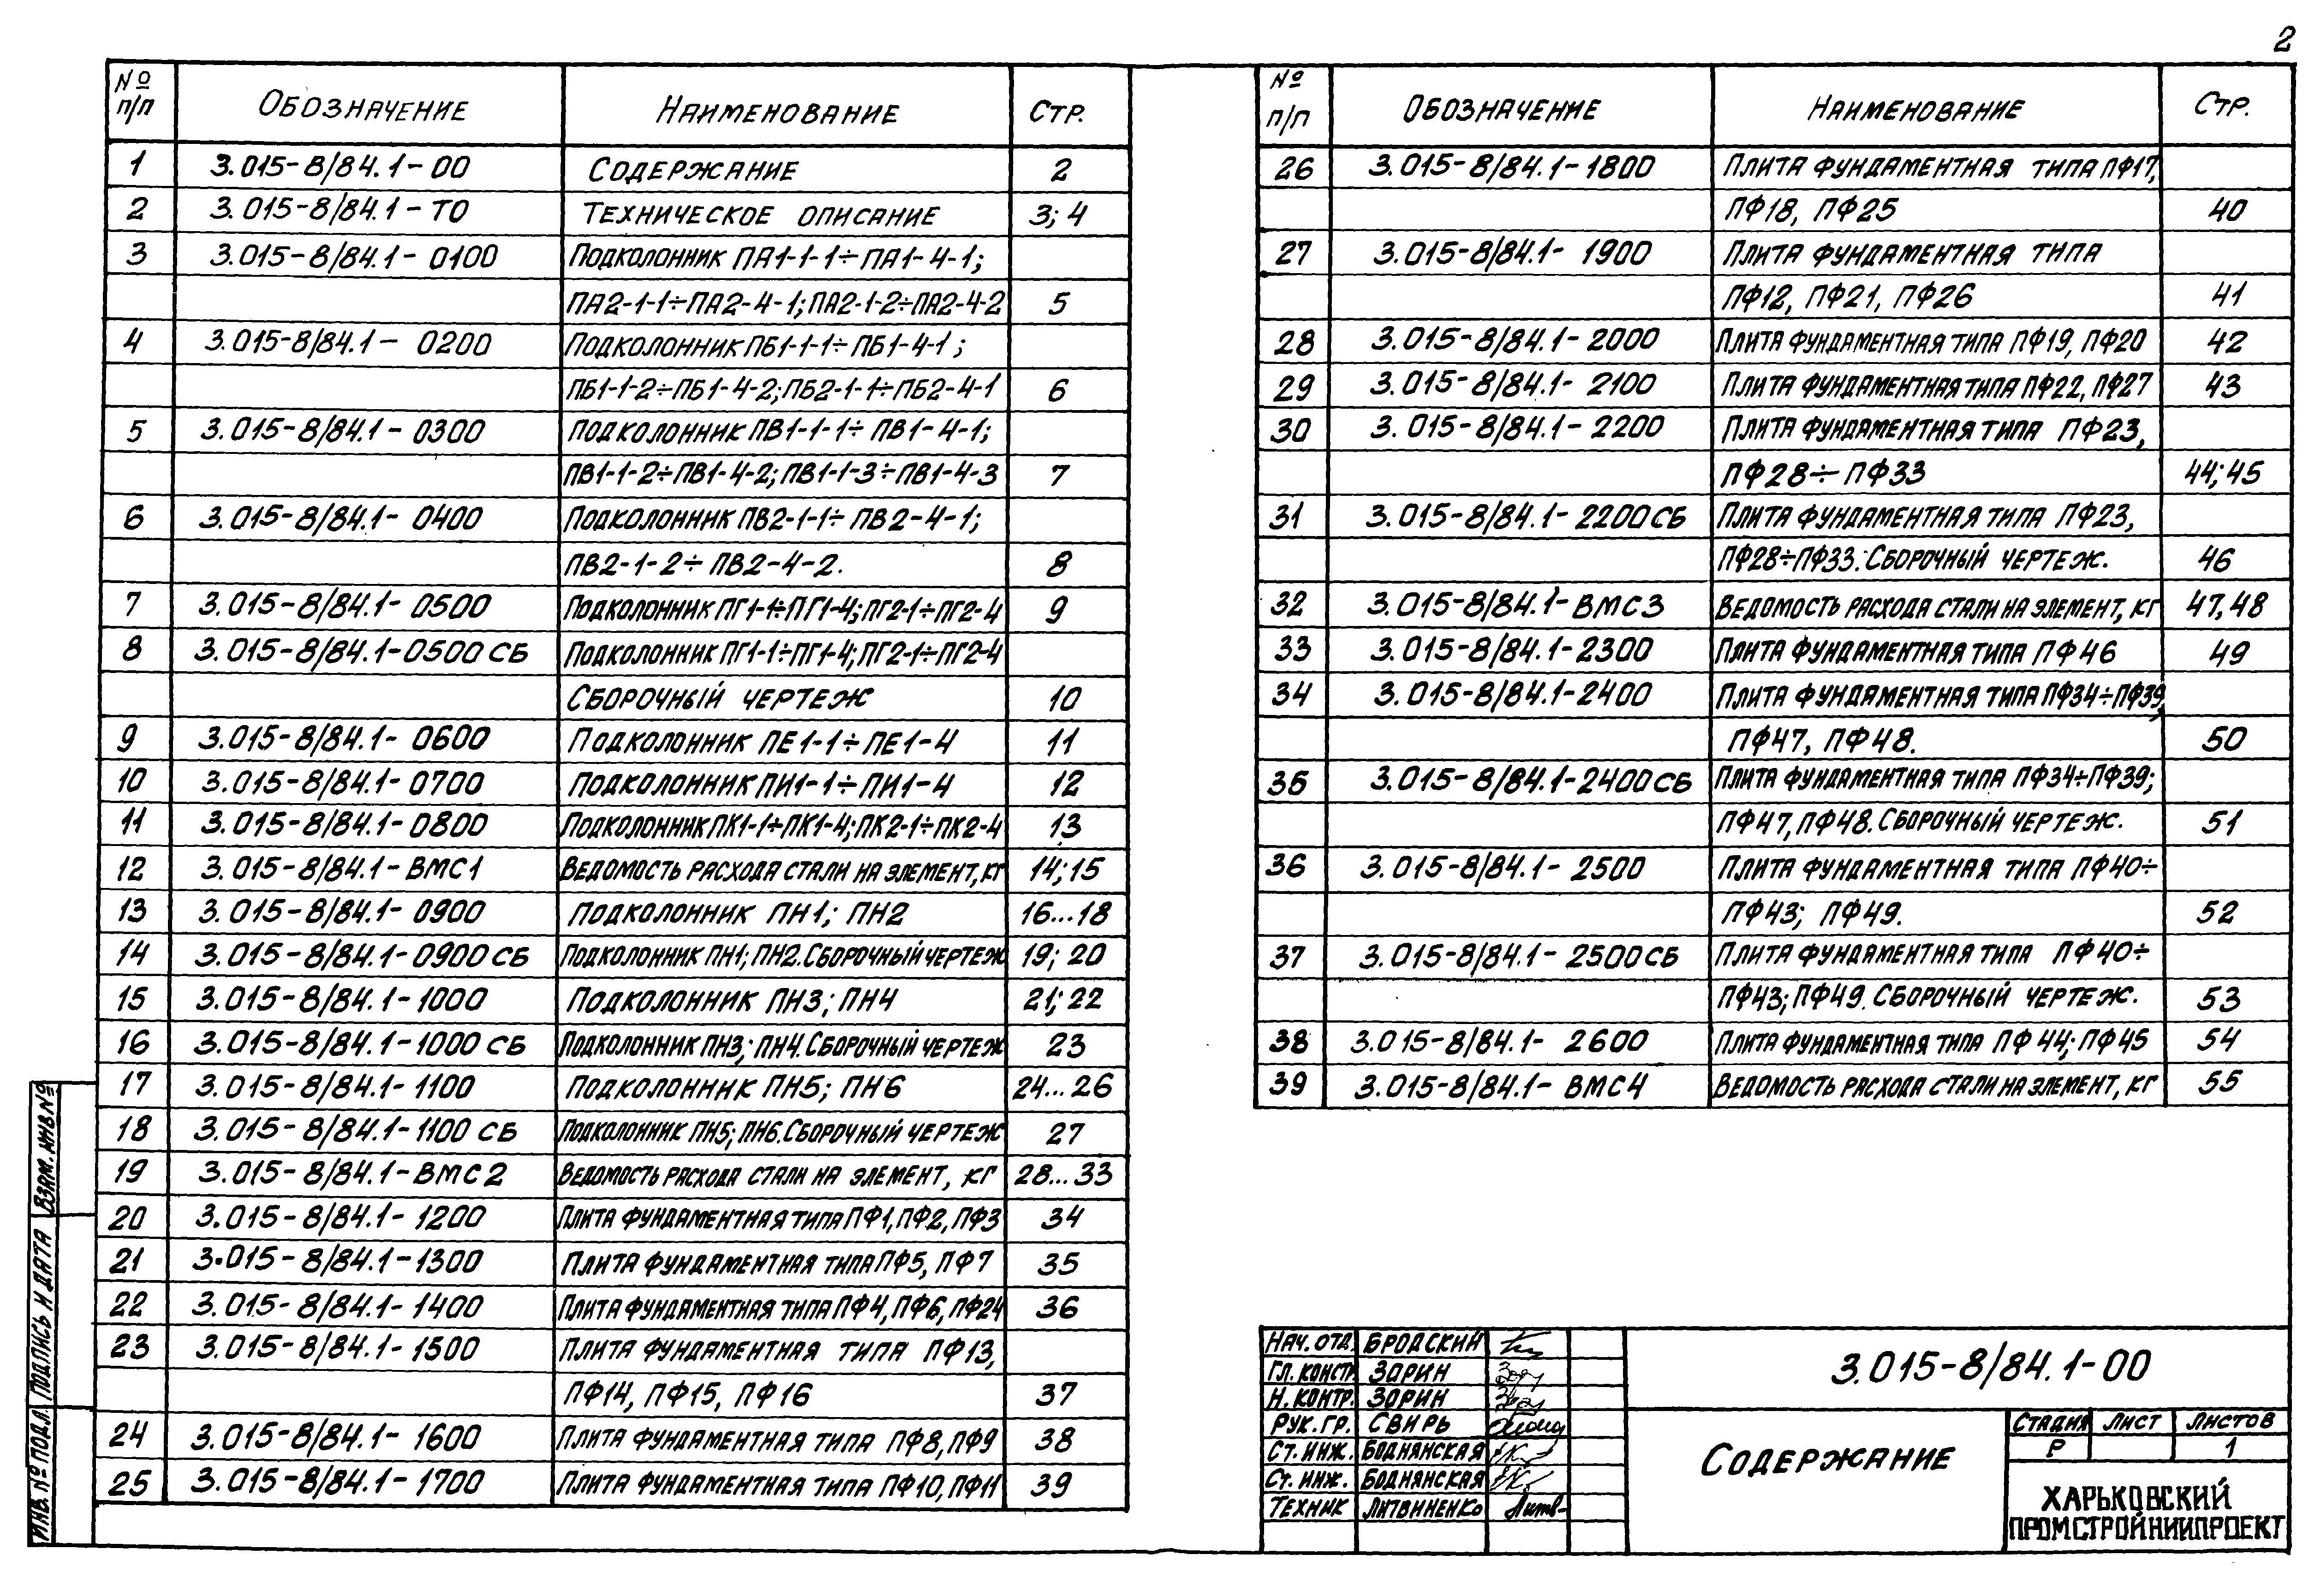 2
№ п/п ОБОЗНАЧЕНИЕ НАИМЕНОВАНИЕ СТР.
1 3.015-8/84.1-00 СОДЕРЖАНИЕ 2
2 3.015-8/84.1-ТО ТЕХНИЧЕСКОЕ ОПИСАНИЕ 3; 4
3 3.015-8/84.1-0100 ПОДКОЛОННИК ПА1-1-1÷ПА1-4-1;
ПА2-1-1÷ПА2-4-1; ПА2-1-2÷ПА2-4-2 5
4 3.015-8/84.1-0200 ПОДКОЛОННИК ПБ1-1-1÷ПБ1-4-1;
ПБ1-1-2÷ПБ1-4-2; ПБ2-1-1÷ПБ2-4-1 6
5 3.015-8/84.1-0300 ПОДКОЛОННИК ПВ1-1-1÷ПВ1-4-1;
ПВ1-1-2÷ПВ1-4-2; ПВ1-1-3÷ПВ1-4-3 7
6 3.015-8/84.1-0400 ПОДКОЛОННИК ПВ2-1-1÷ПВ2-4-1;
ПВ2-1-2÷ПВ2-4-2. 8
7 3.015-8/84.1-0500 ПОДКОЛОННИК ПГ1-1÷ПГ1-4; ПГ2-1÷ПГ2-4 9
8 3.015-8/84.1-0500 СБ ПОДКОЛОННИК ПГ1-1÷ПГ1-4; ПГ2-1÷ПГ2-4
СБОРОЧНЫЙ ЧЕРТЕЖ 10
9 3.015-8/84.1-0600 ПОДКОЛОННИК ПЕ1-1÷ПЕ1-4 11
10 3.015-8/84.1-0700 ПОДКОЛОННИК ПИ1-1÷ПИ1-4 12
11 3.015-8/84.1-0800 ПОДКОЛОННИК ПК1-1÷ПК1-4; ПК2-1÷ПК2-4 13
12 3.015-8/84.1-ВМС1 ВЕДОМОСТЬ РАСХОДА СТАЛИ НА ЭЛЕМЕНТ, КГ 14; 15
13 3.015-8/84.1-0900 ПОДКОЛОННИК ПН1; ПН2 16...18
14 3.015-8/84.1-0900 СБ ПОДКОЛОННИК ПН1; ПН2. СБОРОЧНЫЙ ЧЕРТЕЖ 19; 20
15 3.015-8/84.1-1000 ПОДКОЛОННИК ПН3; ПН4 21; 22
16 3.015-8/84.1-1000 СБ ПОДКОЛОННИК ПН3; ПН4. СБОРОЧНЫЙ ЧЕРТЕЖ 23
17 3.015-8/84.1-1100 ПОДКОЛОННИК ПН5; ПН6 24...26
18 3.015-8/84.1-1100 СБ ПОДКОЛОННИК ПН5; ПН6. СБОРОЧНЫЙ ЧЕРТЕЖ 27
19 3.015-8/84.1-ВМС2 ВЕДОМОСТЬ РАСХОДА СТАЛИ НА ЭЛЕМЕНТ, КГ 28...33
20 3.015-8/84.1-1200 ПЛИТА ФУНДАМЕНТНАЯ ТИПА ПФ1, ПФ2, ПФ3 34
21 3.015-8/84.1-1300 ПЛИТА ФУНДАМЕНТНАЯ ТИПА ПФ5, ПФ7 35
22 3.015-8/84.1-1400 ПЛИТА ФУНДАМЕНТНАЯ ТИПА ПФ4, ПФ6, ПФ24 36
23 3.015-8/84.1-1500 ПЛИТА ФУНДАМЕНТНАЯ ТИПА ПФ13,
ПФ14, ПФ15, ПФ16 37
24 3.015-8/84.1-1600 ПЛИТА ФУНДАМЕНТНАЯ ТИПА ПФ8, ПФ9 38
25 3.015-8/84.1-1700 ПЛИТА ФУНДАМЕНТНАЯ ТИПА ПФ10, ПФ11 39
№ п/п ОБОЗНАЧЕНИЕ НАИМЕНОВАНИЕ СТР.
26 3.015-8/84.1-1800 ПЛИТА ФУНДАМЕНТНАЯ ТИПА ПФ17,
ПФ18, ПФ25 40
27 3.015-8/84.1-1900 ПЛИТА ФУНДАМЕНТНАЯ ТИПА
ПФ12, ПФ21, ПФ26 41
28 3.015-8/84.1-2000 ПЛИТА ФУНДАМЕНТНАЯ ТИПА ПФ19, ПФ20 42
29 3.015-8/84.1-2100 ПЛИТА ФУНДАМЕНТНАЯ ТИПА ПФ22, ПФ27 43
30 3.015-8/84.1-2200 ПЛИТА ФУНДАМЕНТНАЯ ТИПА ПФ23,
ПФ28÷ПФ33 44; 45
31 3.015-8/84.1-2200 СБ ПЛИТА ФУНДАМЕНТНАЯ ТИПА ПФ23,
ПФ28÷ПФ33. СБОРОЧНЫЙ ЧЕРТЕЖ. 46
32 3.015-8/84.1-ВМС3 ВЕДОМОСТЬ РАСХОДА СТАЛИ НА ЭЛЕМЕНТ, КГ 47, 48
33 3.015-8/84.1-2300 ПЛИТА ФУНДАМЕНТНАЯ ТИПА ПФ46 49
34 3.015-8/84.1-2400 ПЛИТА ФУНДАМЕНТНАЯ ТИПА ПФ34÷ПФ39,
ПФ47, ПФ48. 50
35 3.015-8/84.1-2400 СБ ПЛИТА ФУНДАМЕНТНАЯ ТИПА ПФ34÷ПФ39;
ПФ47, ПФ48. СБОРОЧНЫЙ ЧЕРТЕЖ. 51
36 3.015-8/84.1-2500 ПЛИТА ФУНДАМЕНТНАЯ ТИПА ПФ40÷
ПФ43; ПФ49. 52
37 3.015-8/84.1-2500 СБ ПЛИТА ФУНДАМЕНТНАЯ ТИПА ПФ40÷
ПФ43; ПФ49. СБОРОЧНЫЙ ЧЕРТЕЖ. 53
38 3.015-8/84.1-2600 ПЛИТА ФУНДАМЕНТНАЯ ТИПА ПФ44; ПФ45 54
39 3.015-8/84.1-ВМС4 ВЕДОМОСТЬ РАСХОДА СТАЛИ НА ЭЛЕМЕНТ, КГ 55
НАЧ. ОТД. БРОДСКИЙ
ГЛ. КОНСТР. ЗОРИН
Н. КОНТР. ЗОРИН
РУК. ГР. СВИРЬ
СТ. ИНЖ. БОДНЯНСКАЯ
СТ. ИНЖ. БОДНЯНСКАЯ
ТЕХНИК ЛИТВИНЕНКО
3.015-8/84.1-00
СОДЕРЖАНИЕ
СТАДИЯ ЛИСТ ЛИСТОВ
Р 1
ХАРЬКОВСКИЙ
ПРОМСТРОЙНИИПРОЕКТ
ИНВ. № ПОДЛ. ПОДПИСЬ И ДАТА ВЗАМ. ИНВ №